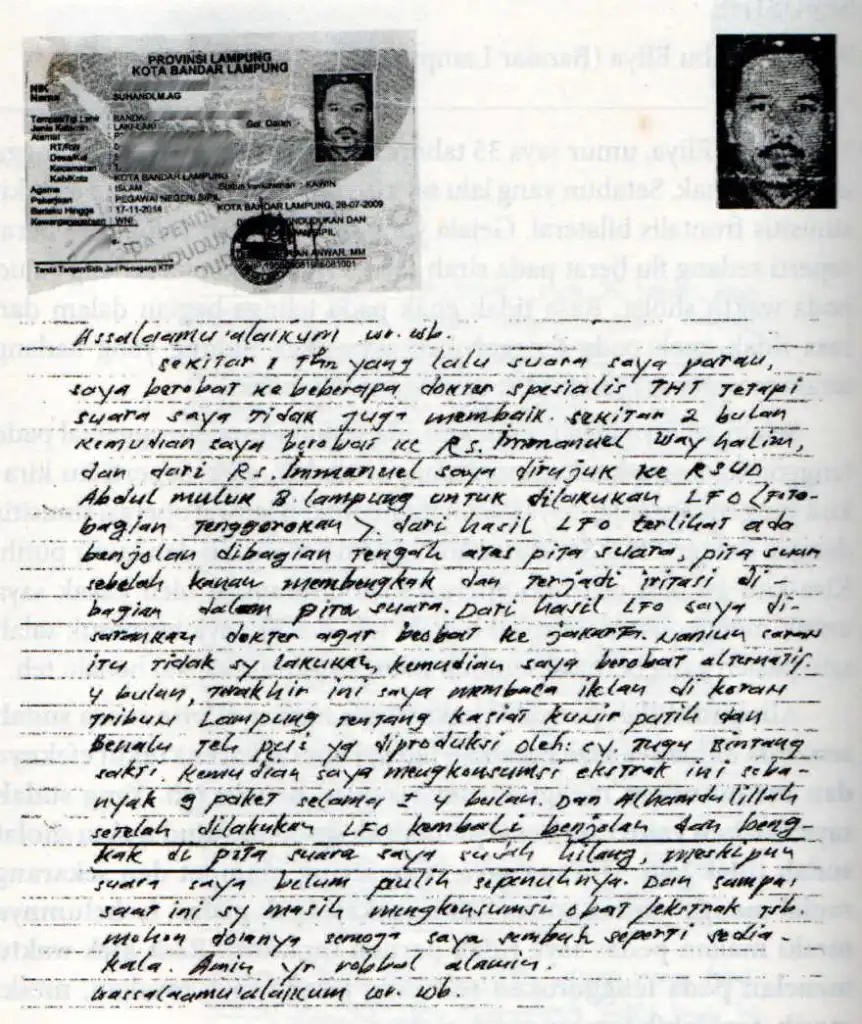 PROVINSI LAMPUNG
KOTA BANDAR LAMPUNG
NIK
Nama : SUHANDI,M.AG
Tempat/Tgl Lahir : BANDA
Jenis Kelamin : LAKI-LAKI Gol. Darah :
Alamat
RT/RW
Desa/Kel
Kecamatan
Kab/Kota : KOTA BANDAR LAMPUNG
Agama : ISLAM Status Perkawinan : KAWIN
Pekerjaan : PEGAWAI NEGERI SIPIL
Berlaku Hingga : 17-11-2014 KOTA BANDAR LAMPUNG, 28-07-2009
Kewarganegaraan : WNI
ANWAR, MM
Tanda Tangan/Sidik Jari Pemegang KTP
Assalaamu'alaikum wr. wb.
sekitar 1 Thn yang lalu suara saya parau,
saya berobat ke beberapa dokter spesialis THT Tetapi
suara saya Tidak juga membaik. sekitar 2 bulan
kemudian saya berobat ke Rs. Immanuel way halim,
dan dari Rs. Immanuel saya dirujuk ke RSUD
Abdul muluk B. lampung untuk dilakukan LFO (Foto-
bagian Tenggorokan). dari hasil LFO terlihat ada
benjolan dibagian Tengah atas pita suara, pita suara
sebelah kanan membengkak dan Terjadi iritasi di-
bagian dalam pita suara. Dari hasil LFO saya di-
sarankan dokter agar beobat ke jakarta. Namun saran
itu Tidak sy lakukan, kemudian saya berobat alternatif.
4 bulan, Terakhir ini saya membaca iklan di koran
Tribun Lampung Tentang kasiat kunir putih dan
Benalu Teh plus yg diproduksi oleh: cv. Tugu Bintang
sakti. kemudian saya mengkonsumsi ekstrak ini seba-
nyak 9 paket selama ± 4 bulan. Dan Alhamdulillah
setelah dilakukan LFO kembali benjolan dan beng
kak di pita suara saya sudah hilang, meskipun
suara saya belum pulih sepenuhnya. Dan sampai
saat ini sy masih mengkonsumsi obat /ekstrak tsb.
mohon doianya semoga saya sembuh seperti sedia
kala. Amin yr robbal alamin.
wassalaamu'alaikum wr. wb.